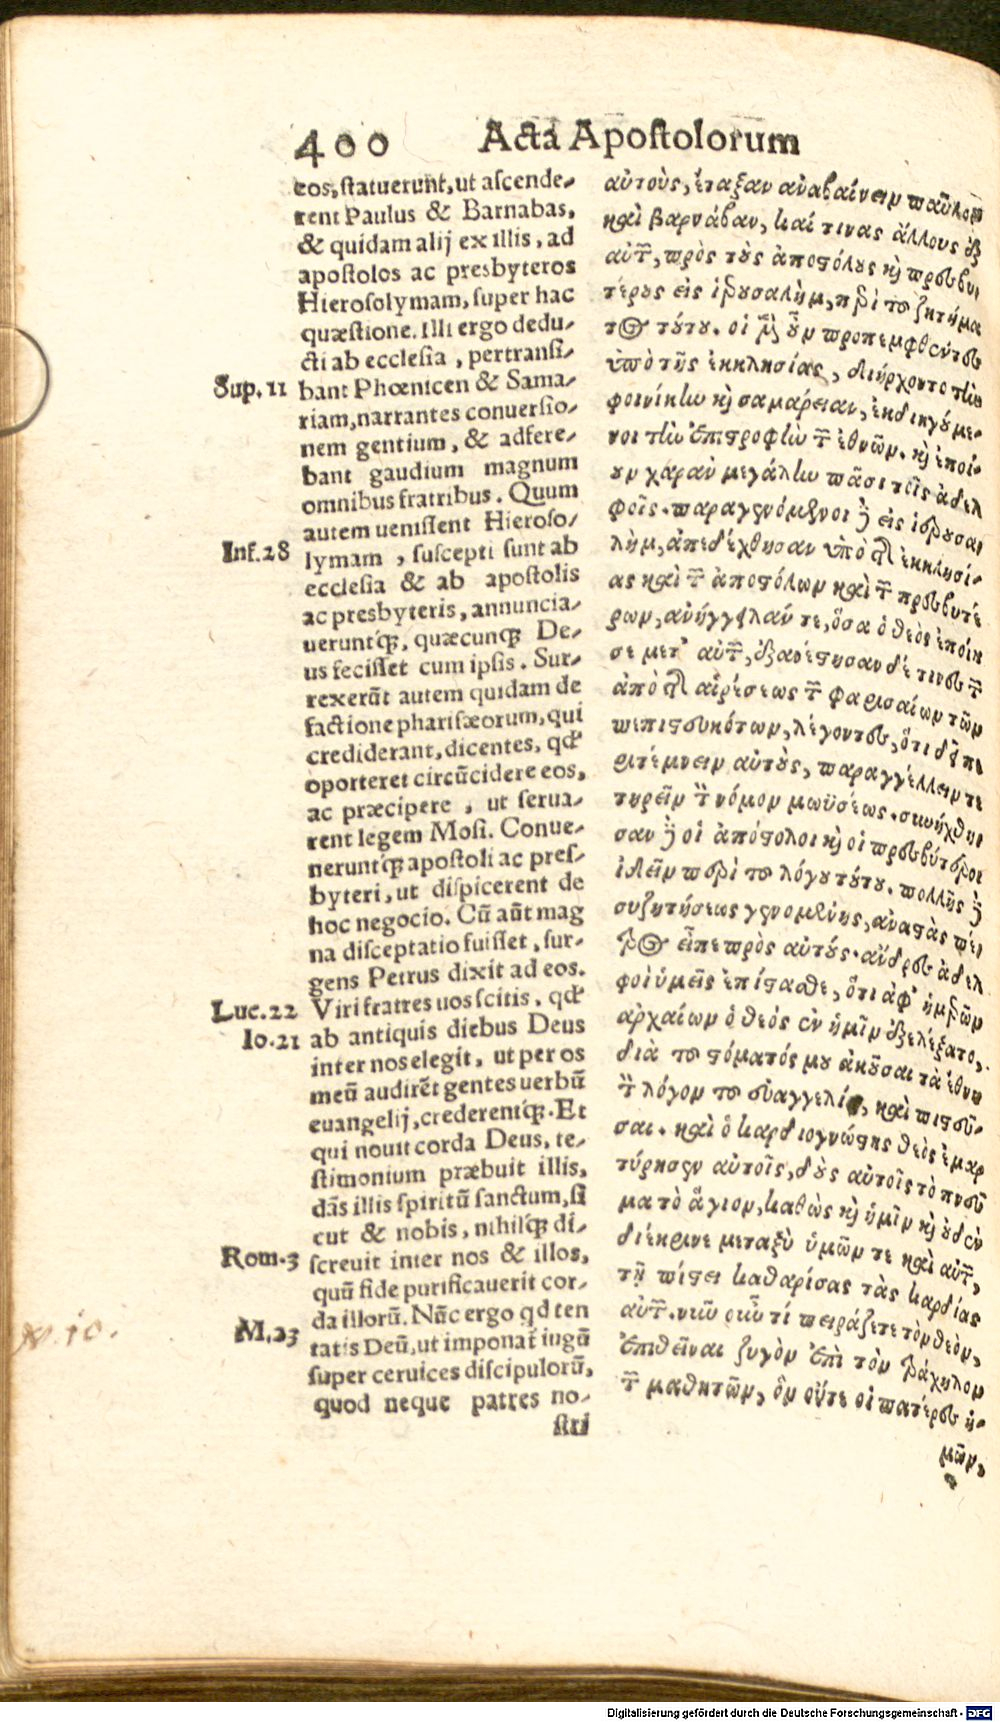 400 Acta Apostolorum
eos, statuerunt, ut ascende-
rent Paulus & Barnabas,
& quidam alij ex illis, ad
apostolos ac presbyteros
Hierosolymam, super hac
quæstione. Illi ergo dedu-
cti ab ecclesia, pertransi-
Sup. 11 bant Phœnicen & Sama-
riam, narrantes conuersio-
nem gentium, & adfere-
bant gaudium magnum
omnibus fratribus. Quum
autem uenissent Hieroso-
Inf. 28 lymam, suscepti sunt ab
ecclesia & ab apostolis
ac presbyteris, annuncia-
ueruntq́;, quæcunq; De-
us fecisset cum ipsis. Sur-
rexerūt autem quidam de
factione pharisæorum, qui
crediderant, dicentes, qd'
oporteret circūcidere eos,
ac præcipere, ut serua-
rent legem Mosi. Conue-
neruntq́; apostoli ac pres-
byteri, ut dispicerent de
hoc negocio. Cū aūt mag
na disceptatio fuisset, sur-
gens Petrus dixit ad eos.
Luc. 22 Viri fratres uos scitis, qd'
Io. 21 ab antiquis diebus Deus
inter nos elegit, ut per os
meū audirēt gentes uerbū
euangelij, crederentq́;. Et
qui nouit corda Deus, te-
stimonium præbuit illis,
dās illis spiritū sanctum, si
cut & nobis, nihilq́; di-
Rom. 3 screuit inter nos & illos,
quū fide purificauerit cor-
da illorū. Nūc ergo qd ten
M. 23 tatis Deū, ut imponat iugū
super ceruices discipulorū,
quod neque patres no-
stri
αὐτοὺς, ἔταξαν ἀναβαίνειν παῦλον
καὶ βαρνάβαν, καί τινας ἄλλους ἐξ
αὐτῶν, πρὸς τοὺς ἀποστόλους καὶ πρεσβυ
τέρους εἰς ἱερουσαλὴμ, περὶ τοῦ ζητήμα
τος τούτου. οἱ μὲν οὖν προπεμφθέντες
ὑπὸ τῆς ἐκκλησίας, διήρχοντο τὴν
φοινίκην καὶ σαμάρειαν, ἐκδιηγούμε-
νοι τὴν ἐπιστροφὴν τῶν ἐθνῶν. καὶ ἐποί-
ουν χάραν μεγάλην πᾶσι τοῖς ἀδελ
φοῖς. παραγενόμενοι δὲ εἰς ἱερουσα
λὴμ, ἀπεδέχθησαν ὑπὸ τῆς ἐκκλησί-
ας καὶ τῶν ἀποστόλων καὶ τῶν πρεσβυτέ
ρων, ἀνήγγειλάν τε, ὅσα ὁ θεὸς ἐποίη
σε μετ' αὐτῶν, ἐξανέστησαν δέ τινες τῶν
ἀπὸ τῆς αἱρέσεως τῶν φαρισαίων τῶν
πεπιστευκότων, λέγοντες, ὅτι δεῖ πε
ριτέμνειν αὐτοὺς, παραγγέλλειν τε
τηρεῖν τὸν νόμον μωϋσέως. συνήχθη
σαν δὲ οἱ ἀπόστολοι καὶ οἱ πρεσβύτεροι
ἰδεῖν περὶ τοῦ λόγου τούτου. πολλῆς δὲ
συζητήσεως γενομένης, ἀναστὰς πέ
τρος εἶπε πρὸς αὐτούς. ἄνδρες ἀδελ
φοὶ ὑμεῖς ἐπίστασθε, ὅτι ἀφ' ἡμερῶν
ἀρχαίων ὁ θεὸς ἐν ἡμῖν ἐξελέξατο,
διὰ τοῦ στόματός μου ἀκοῦσαι τὰ ἔθνη
τὸν λόγον τοῦ εὐαγγελίου, καὶ πιστεῦ-
σαι. καὶ ὁ καρδιογνώστης θεὸς ἐμαρ
τύρησεν αὐτοῖς, δοὺς αὐτοῖς τὸ πνεῦ
μα τὸ ἅγιον, καθὼς καὶ ἡμῖν καὶ οὐδὲν
διέκρινε μεταξὺ ὑμῶν τε καὶ αὐτῶν,
τῇ πίστει καθαρίσας τὰς καρδίας
αὐτῶν. νῦν οὖν τί πειράζετε τὸν θεὸν,
ἐπιθεῖναι ζυγὸν ἐπὶ τὸν τράχηλον
τῶν μαθητῶν, ὃν οὔτε οἱ πατέρες ἡ-
μῶν,
Digitalisierung gefördert durch die Deutsche Forschungsgemeinschaft - DFG